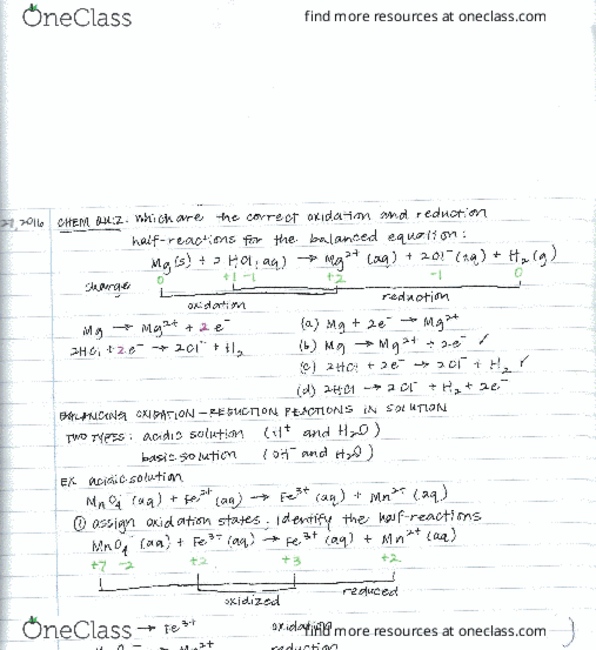 OneClass find more resources at oneclass.com
27, 2016 CHEM QUIZ. Which are the correct oxidation and reduction
half-reactions for the balanced equation:
Mg(s) + 2 HCl(aq) → Mg²⁺ (aq) + 2Cl⁻ (aq) + H₂ (g)
charge 0 +1 -1 +2 -1 0
oxidation reduction
Mg → Mg²⁺ + 2e⁻ (a) Mg + 2e⁻ → Mg²⁺
2HCl + 2e⁻ → 2Cl⁻ + H₂ (b) Mg → Mg²⁺ + 2e⁻ ✓
(c) 2HCl + 2e⁻ → 2Cl⁻ + H₂ ✓
(d) 2HCl → 2Cl⁻ + H₂ + 2e⁻
BALANCING OXIDATION-REDUCTION REACTIONS IN SOLUTION
TWO TYPES: acidic solution (H⁺ and H₂O)
basic solution (OH⁻ and H₂O)
EX. acidic solution
MnO₄⁻ (aq) + Fe²⁺ (aq) → Fe³⁺ (aq) + Mn²⁺ (aq)
① assign oxidation states. Identify the half-reactions
MnO₄⁻ (aq) + Fe²⁺ (aq) → Fe³⁺ (aq) + Mn²⁺ (aq)
+7 -2 +2 +3 +2
oxidized reduced
→ Fe³⁺ oxidation
OneClass find more resources at oneclass.com
Mn²⁺ reduction